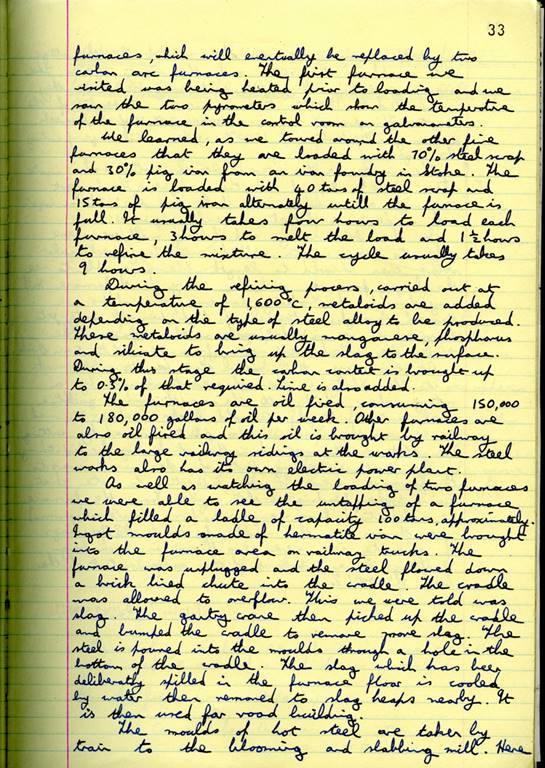 33
furnaces, which will eventually be replaced by two
carbon arc furnaces. The first furnace we
visited was being heated prior to loading and we
saw the two pyrometers which show the temperature
of the furnace in the control room on galvanometers.
We learned, as we toured around the other five
furnaces that they are loaded with 70% steel scrap
and 30% pig iron from an iron foundry in Stoke. The
furnace is loaded with 40 tons of steel scrap and
15 tons of pig iron alternately untill the furnace is
full. It usually takes four hours to load each
furnace, 3 hours to melt the load and 1½ hours
to refine the mixture. The cycle usually takes
9 hours.
During the refining process, carried out at
a temperature of 1,600°C, metaloids are added
depending on the type of steel alloy to be produced.
These metaloids are usually manganese, phosphorus
and silicate to bring up the slag to the surface.
During this stage the carbon content is brought up
to 0.3% of that required. Lime is also added.
The furnaces are oil fired, consuming 150,000
to 180,000 gallons of oil per week. Other furnaces are
also oil fired and this oil is brought by railway
to the large railway sidings at the works. The steel
works also has its own electric power plant.
As well as watching the loading of two furnaces
we were able to see the untapping of a furnace
which filled a ladle of capacity 100 tons, approximately.
Ingot moulds made of hermatite iron were brought
into the furnace area on railway trucks. The
furnace was unplugged and the steel flowed down
a brick lined chute into the cradle. The cradle
was allowed to overflow. This we were told was
slag. The gantry crane then picked up the cradle
and bumped the cradle to remove more slag. The
steel is poured into the moulds though a hole in the
bottom of the cradle. The slag which has been
deliberately spilled in the furnace floor is cooled
by water then removed to slag heaps nearby. It
is then used for road building.
The moulds of hot steel are taken by
train to the blooming and slabbing mill. Here